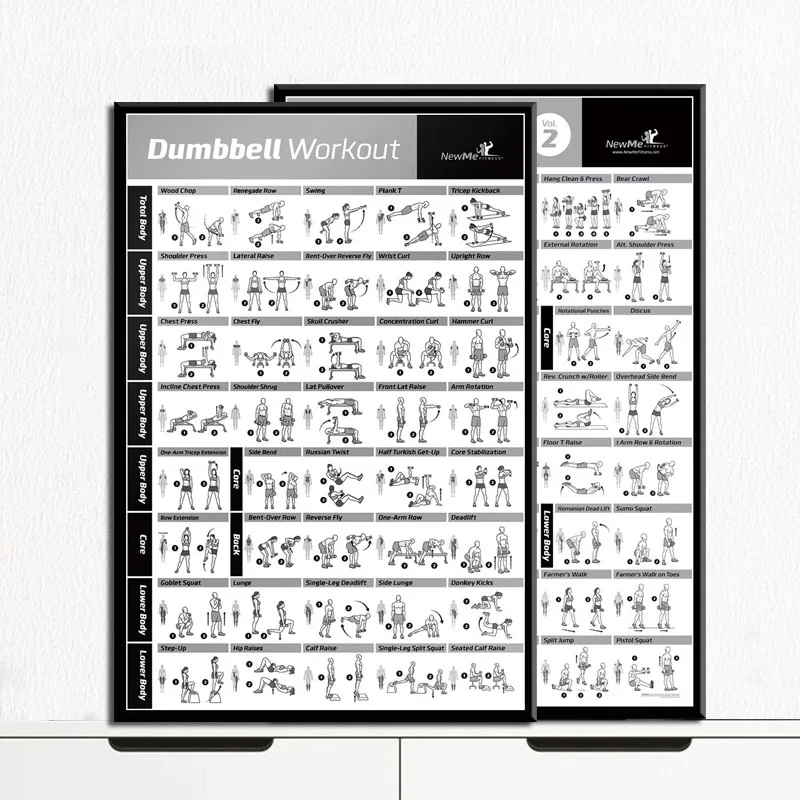 Dumbbell Workout
NewMe
FITNESS
Total Body
Wood Chop
Renegade Row
Swing
Plank T
Tricep Kickback
Upper Body
Shoulder Press
Lateral Raise
Bent-Over Reverse Fly
Wrist Curl
Upright Row
Upper Body
Chest Press
Chest Fly
Skull Crusher
Concentration Curl
Hammer Curl
Upper Body
Incline Chest Press
Shoulder Shrug
Lat Pullover
Front Lat Raise
Arm Rotation
Upper Body
One-Arm Tricep Extension
Core
Side Bend
Russian Twist
Half Turkish Get-Up
Core Stabilization
Core
Bow Extension
Back
Bent-Over Row
Reverse Fly
One-Arm Row
Deadlift
Lower Body
Goblet Squat
Lunge
Single-Leg Deadlift
Side Lunge
Donkey Kicks
Lower Body
Step-Up
Hip Raises
Calf Raise
Single-Leg Split Squat
Seated Calf Raise
Vol.
2
NewMe
FITNESS
www.NewMeFitness.net
Hang Clean & Press
Bear Crawl
External Rotation
Alt. Shoulder Press
Core
Rotational Punches
Discus
Rev. Crunch w/Roller
Overhead Side Bend
Floor T Raise
1 Arm Row & Rotation
Lower Body
Romanian Dead Lift
Sumo Squat
Farmer's Walk
Farmer's Walk on Toes
Split Jump
Pistol Squat